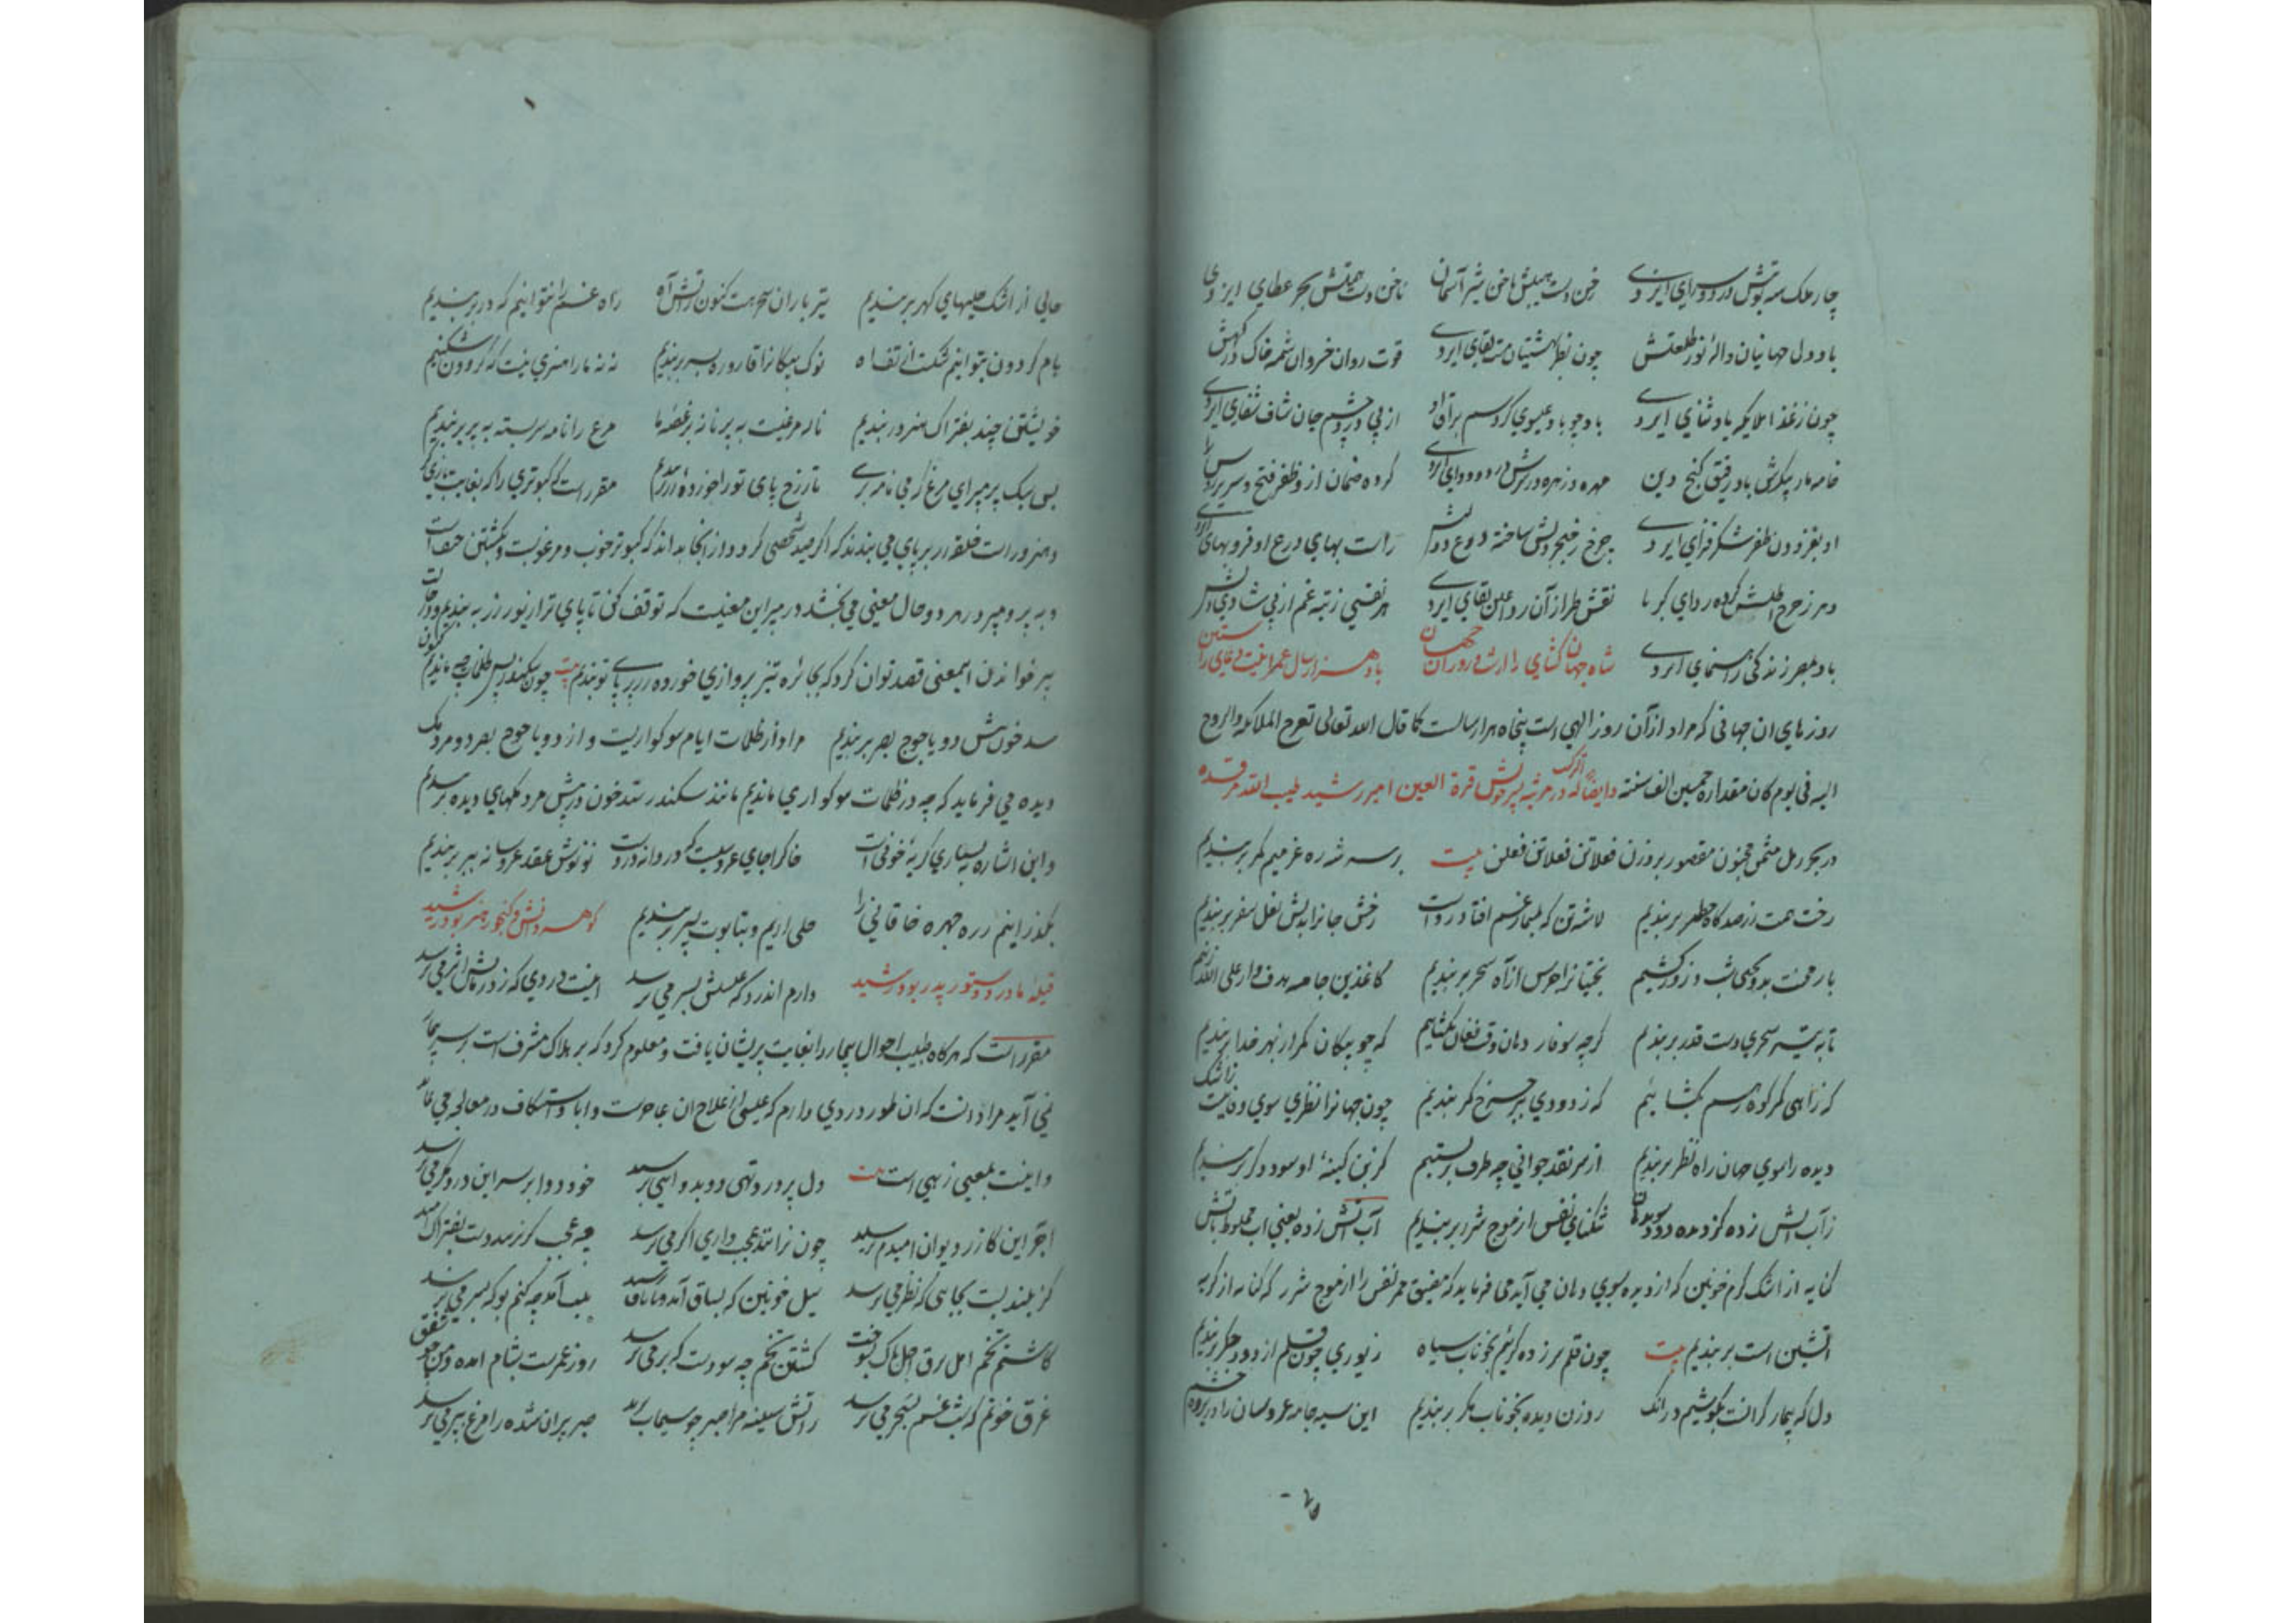 چار ملک سه نوبتش در دو سرای ایزدی ناخن دست هیبتش ناخن شیر آسمان ناخن دست همتش بحر عطای ایزدی
باد دل جهانیان واله نور طلعتش چون نظر بهشتیان مست بقای ایزدی قوت روان خسروان شمه خاک درگهش
چون ز غذا ملایکه باد ثنای ایزدی باد چو باد عیسوی گرد سم براق او از پی درد چشم جان شاف شفای ایزدی
خامه مار پیکرش باد رفیق گنج دین مهره و زهره در سرش درد و دوای ایزدی کرده ضمان از و ظفر فتح و سریر
او بغزو دون ظفر شکر فزای ایزدی چرخ ز خنجر و لبش ساخته درع و راست بهای درع او فر و بهای ایزدی
در ز چرخ اطلسش کرده ردای کبریا نقش طراز آن ردا عین بقای ایزدی هر نفسی ز تبه غم از پی شادی دلش
باد بمصر زندگی راهنمای ایزدی شاه جهان گشای را از شب و روز آن جهان باد هزار سال عمر اینت دعای راستین
روزهای آن جهانی که مراد از آن روز الهی است پنجاه هزار سالست کما قال الله تعالی تعرج الملائکة والروح
الیه فی یوم کان مقداره خمسین الف سنة و ایضا له در مرثیه پسر خویش قرة العین امیر رشید طیب الله مرقده
در بحر رمل مثمن مخبون مقصور بر وزن فعلاتن فعلاتن فعلن بیت بر سر شه ره عزمیم کمر بربندیم
رخت همت ز رصدگاه خطر بربندیم لاشه تن که بمسمار غم افتاد رواست رخش جانرا بدلش نعل سفر بربندیم
بار محنت بدو بختی شب و روز کشیم بختیانرا جرس از آه سحر بربندیم کاغذین جامه هدف وار علی الله زنیم
تا به تیر سحری دست قدر بربندیم گرچه سوفار دهان وقت فغان بگشاییم که چو پیکان کمر از بهر خدا بربندیم
که ز آهی کمر کوه ز هم بگشاییم که ز دودی بر چرخ کمر بندیم چون جهانرا نظری سوی وفا نیست ز اشک
دیده را سوی جهان راه نظر بربندیم از سر نقد جوانی چه طرف بربستیم کز بن کیسه او سود دگر بربندیم
ز آب آتش زده کز دیده رود سوی دهان تنگنای نفس از موج شرر بربندیم آب آتش زده یعنی آب مخلوط بآتش
کنایه از اشک گرم خونین که از دیده بسوی دهان می آید می فرماید که مضیق ممر نفس را از موج شرر که کنایه از گریه
آتشین است بربندیم بیت چون قلم سر زده گرییم بخوناب سیاه زیوری چون قلم از دود جگر بربندیم
دل که بیمار گرانست بکوشیم در آنک روزن دیده بخوناب مگر بربندیم این سیه جامه عروسان را در پرده چشم
حالی از اشک حلیهای گهر بربندیم تیر باران سحر هست کنون ز آتش آه راه غم را نتوانیم که در بربندیم
بام گردون بتوانیم شکست از تف آه نوک پیکانرا قاروره بسر بربندیم نه نه ما را هنری نیست که گردون شکنیم
خویشتن چند بفتراک هنر بربندیم ناله مرغیست به پر نامه بر غصه ما مرغ را نامه سربسته به پر بربندیم
بس سبک پر مپر ای مرغ که می نامه بری تا ز رخ پای تو را خورده زر بربندیم مقرر است که کبوتری را که بغایت نازی
و هنرور است حلقه زر بر پای می بندند که اگر صید شخصی گردد از آنجا بداند که کبوتر خوب و مرغوبست و کشتن حیف است
و به پر و مپر در هر دو حال معنی می بخشد در مپر این معنیست که توقف کن تا پای ترا زیور زر به بندیم و در حالت
بپر خواندن اینمعنی قصد توان کرد که بجایزه تیز پروازی خورده زر بر پای تو بندیم بیت چون سکندر پس ظلمات چه ماندیم کنون
سد خون پیش دو یاجوج بصر بربندیم مراد از ظلمات ایام سوگواریست و از دو یاجوج بصر دو مردمک
دیده می فرماید که چه در ظلمات سوگواری ماندیم مانند سکندر سد خون در پیش مردمکهای دیده بربندیم
و این اشاره به بسیاری گریه خونی است خاک را جای عروسیست که دردانه دروست نو نوش عقد عروسانه ببر بربندیم
بگذاریم زر و چهره خاقانی را حلی آریم و بتابوت پسر بربندیم گوهر دانش و گنجور هنر بود رشید
قبله مادر و دستور پدر بود رشید دارم آن درد که عیسیش بسر می نرسد اینت دردی که ز درمانش اثر می نرسد
مقرر است که هرگاه طبیب احوال بیمار را بغایت پریشان یافت و معلوم کرد که بر هلاک مشرف است بر سر بیمار
نمی آید مراد آنست که آن طور دردی دارم که عیسی از علاج آن عاجزست و ابا و استنکاف در معالجه می نماید
و اینت بمعنی زهی است بیت دل پر درد تهی دو بدوایی نرسد خود دوا بر سر این درد مگر می نرسد
اجری این کار ز دیوان امیدم نرسید چون نرانند عجب داری اگر می نرسد چه عجب گر نرسد دست بفتراک امید
کز بلندیست بجایی که نظر می نرسد سیل خونین که بساق آمد و تا ناف رسید بلب آمد چه کنم بو که بسر می نرسد
کاشتم تخم امل برق اجل پاک بسوخت کشتن تخم چه سودست که بر می نرسد روز عمرست بشام آمده و من چو شفق
غرق خونم که شب غم بسحر می نرسد ز آتش سینه مرا صبر چو سیماب پرید صبر پران شده را مرغ بپر می نرسد